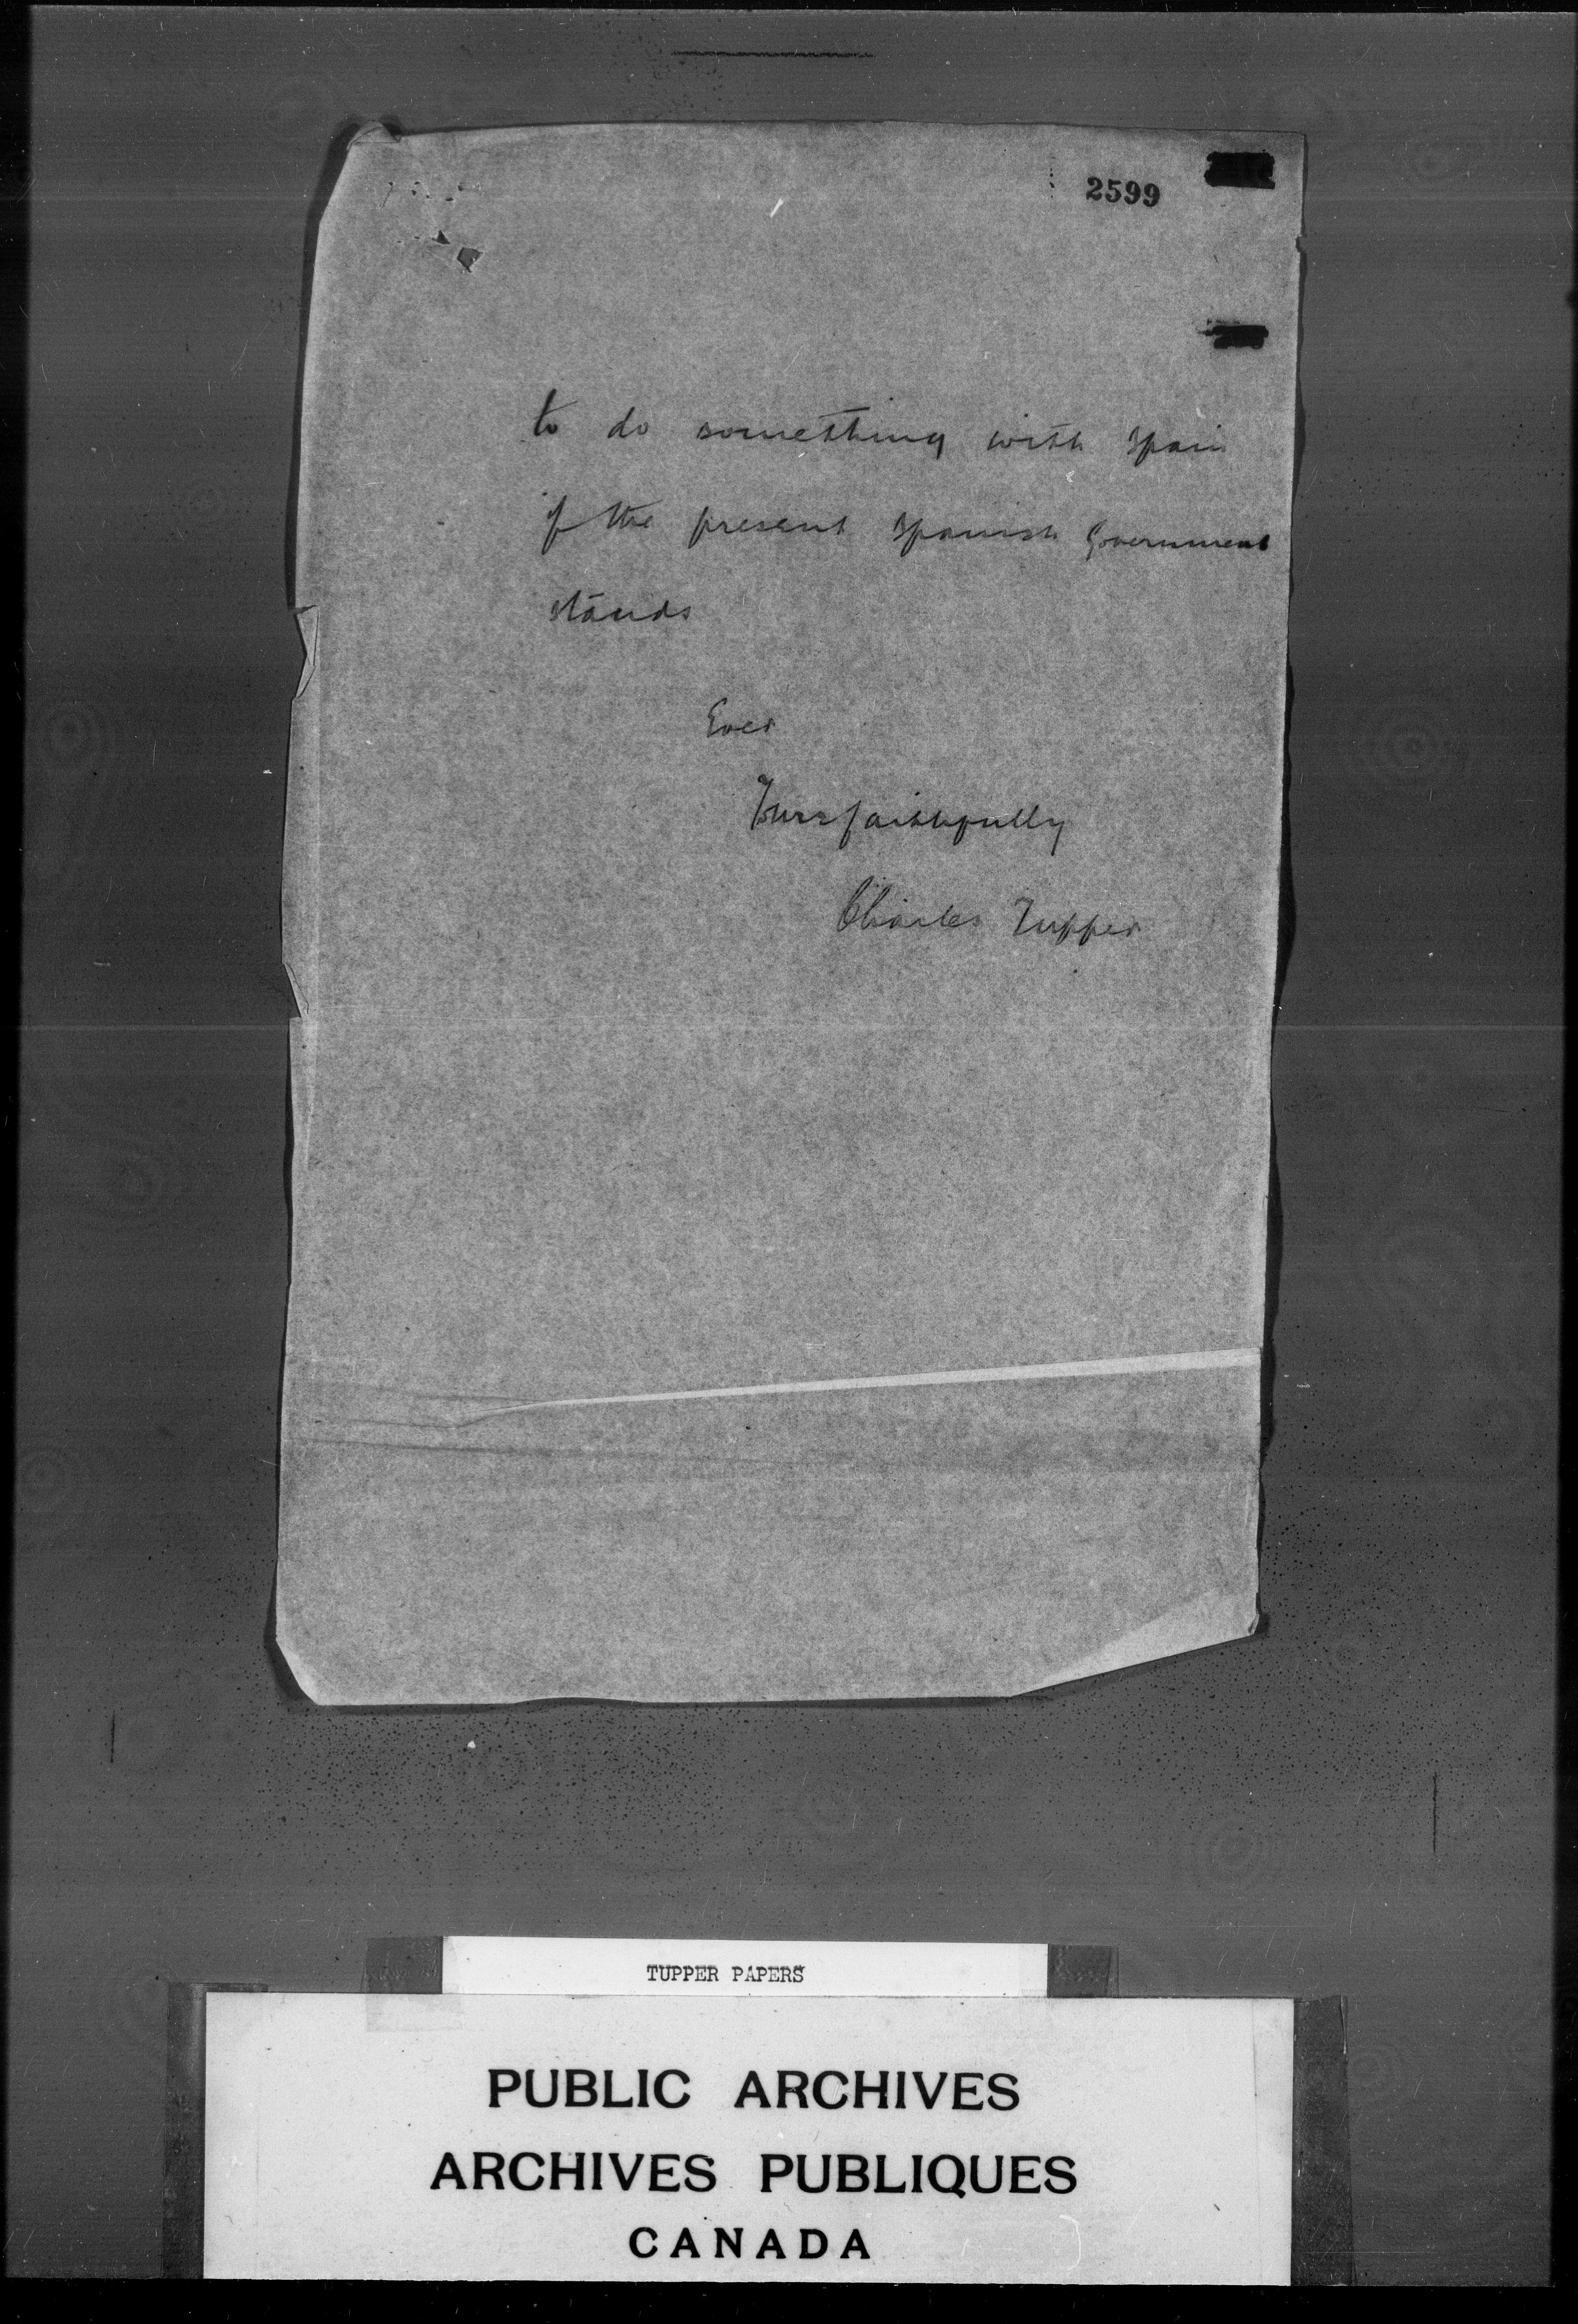 2599
to do something with Spain
if the present Spanish Government
stands
Ever
Yours faithfully
Charles Tupper
TUPPER PAPERS
PUBLIC ARCHIVES
ARCHIVES PUBLIQUES
CANADA